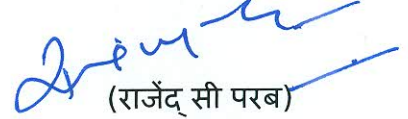 (राजेंद् सी परब)